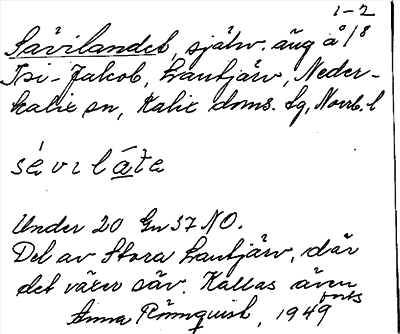 1-2
Sävilandet, självv. äug å 1/8
Isi-Jakob, Lantjärv, Neder-
kalix sn, Kalix doms. lg, Norrb. l
sävılạ̄te
Under 20 Gn 37 NO.
Del av Stora Lantjärv, där
det växer säv. Kallas även
forts
Anna Rönnquist, 1949